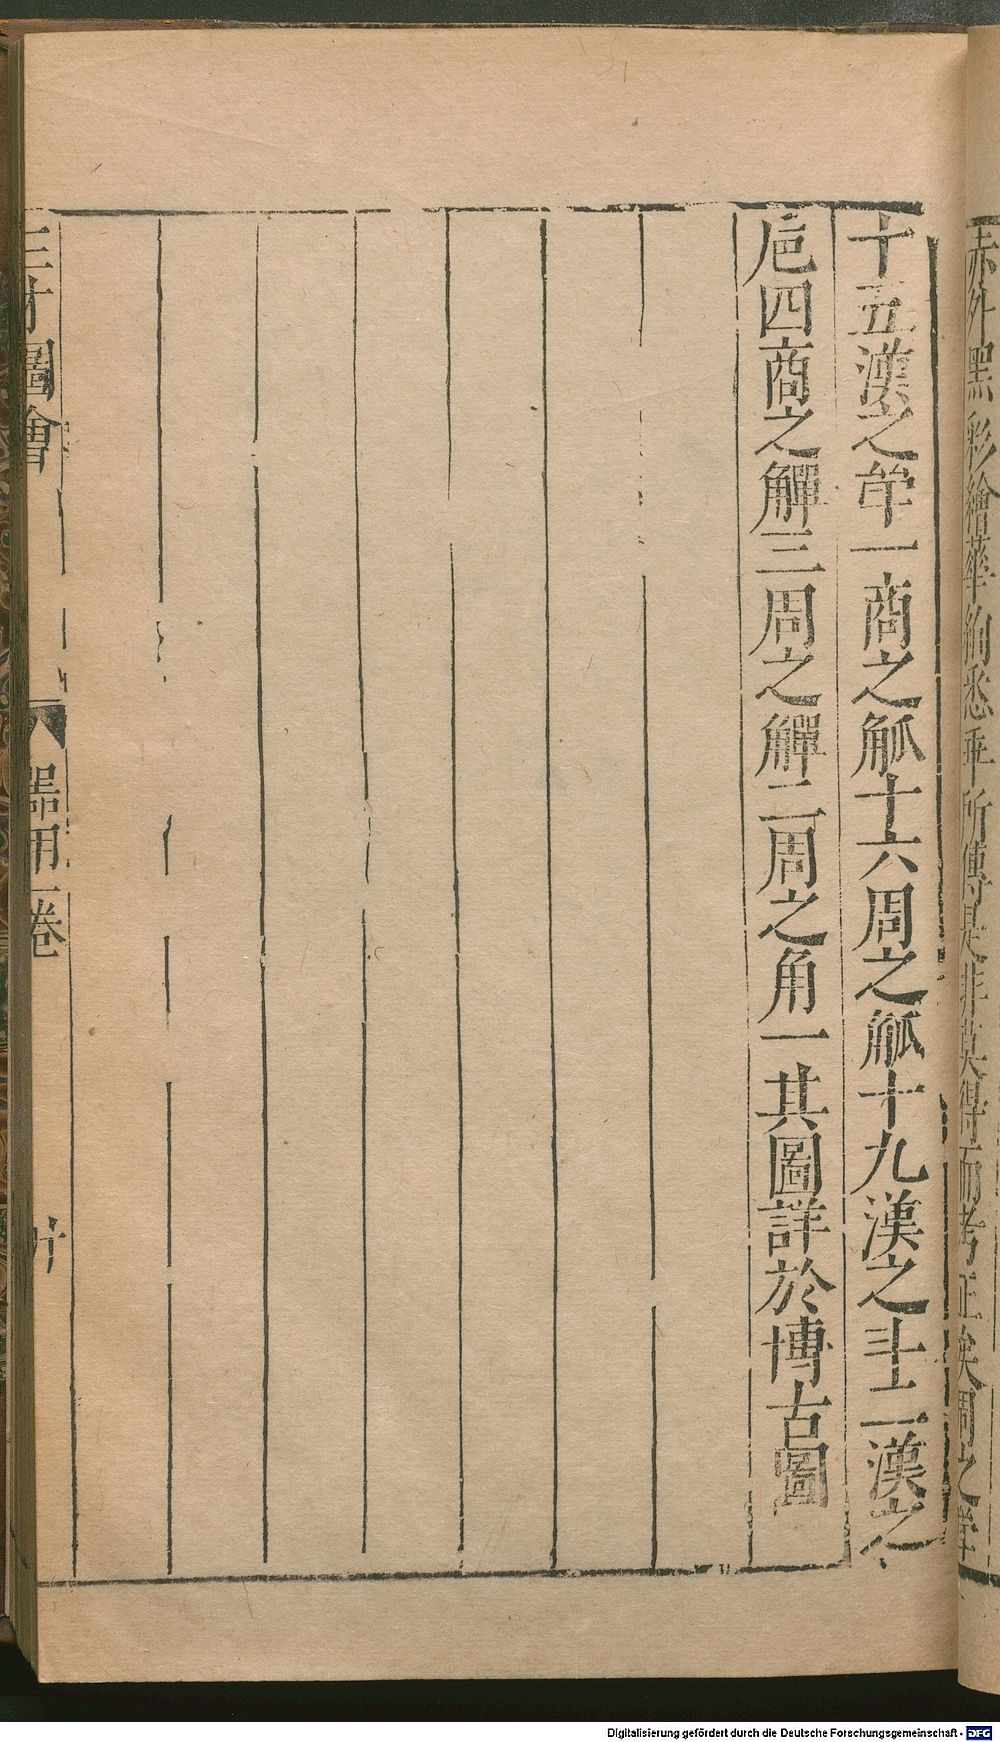 赤外黑彩繪華絢悉乖所傳是非莫得而考正矣周之斝
十五漢之斝一商之觚十六周之觚十九漢之斗二漢之
巵四商之觶三周之觶二周之角一其圖詳於博古圖
三才圖會 器用一卷 廿
Digitalisierung gefördert durch die Deutsche Forschungsgemeinschaft - DFG